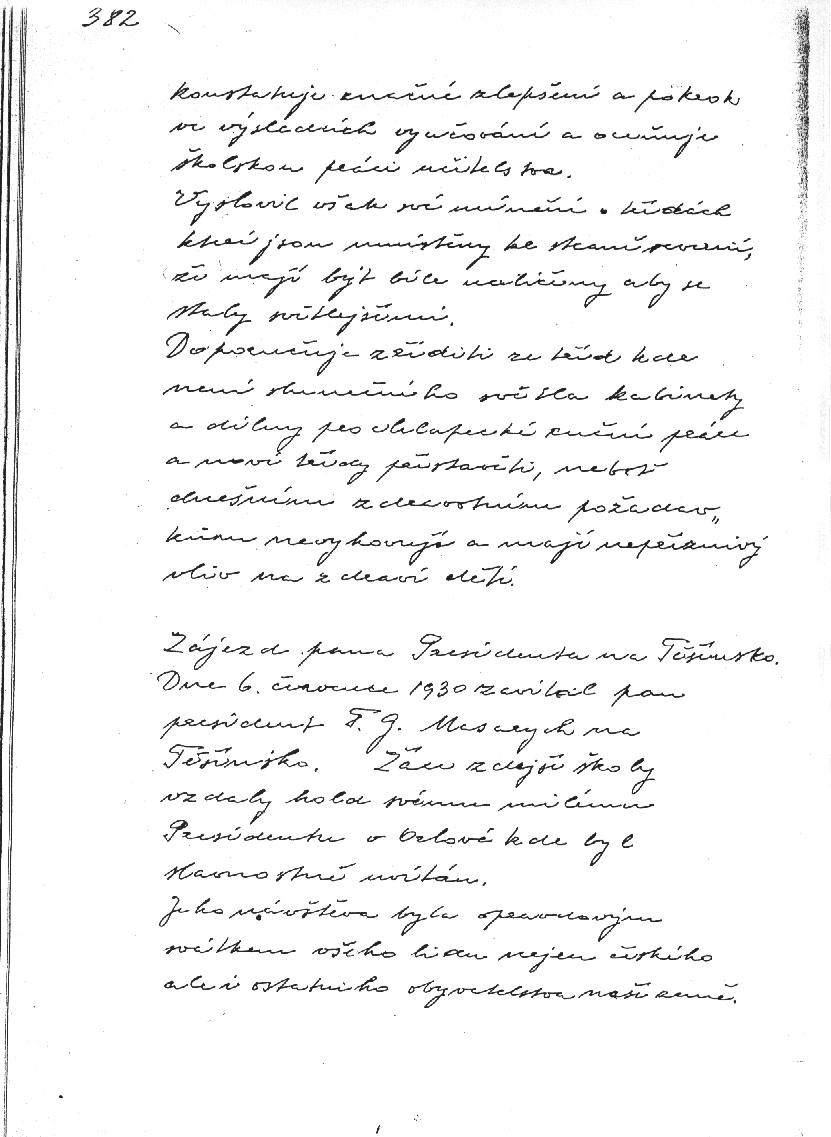 382
konstatuje značné zlepšení a pokrok
ve výsledcích vyučování a oceňuje
školskou práci učitelstva.
Vyslovil však své mínění o třídách
které jsou umístěny ke straně severní,
že mají být bíle nalíčeny aby se
staly světlejšími.
Doporučuje zříditi ze tříd kde
není slunečního světla kabinety
a dílny pro chlapecké ruční práce
a nové třídy přistavěti, neboť
dnešním zdravotním požadav„
kům nevyhovují a mají nepříznivý
vliv na zdraví dětí.
Zájezd pana Presidenta na Těšínsko.
Dne 6. července 1930 zavítal pan
president T. G. Masaryk na
Těšínsko. Žáci zdejší školy
vzdaly hold svému milému
Presidentu v Orlové kde byl
slavnostně uvítán.
Jeho návštěva byla opravdovým
svátkem všeho lidu nejen českého
ale i ostatního obyvatelstva naší země.